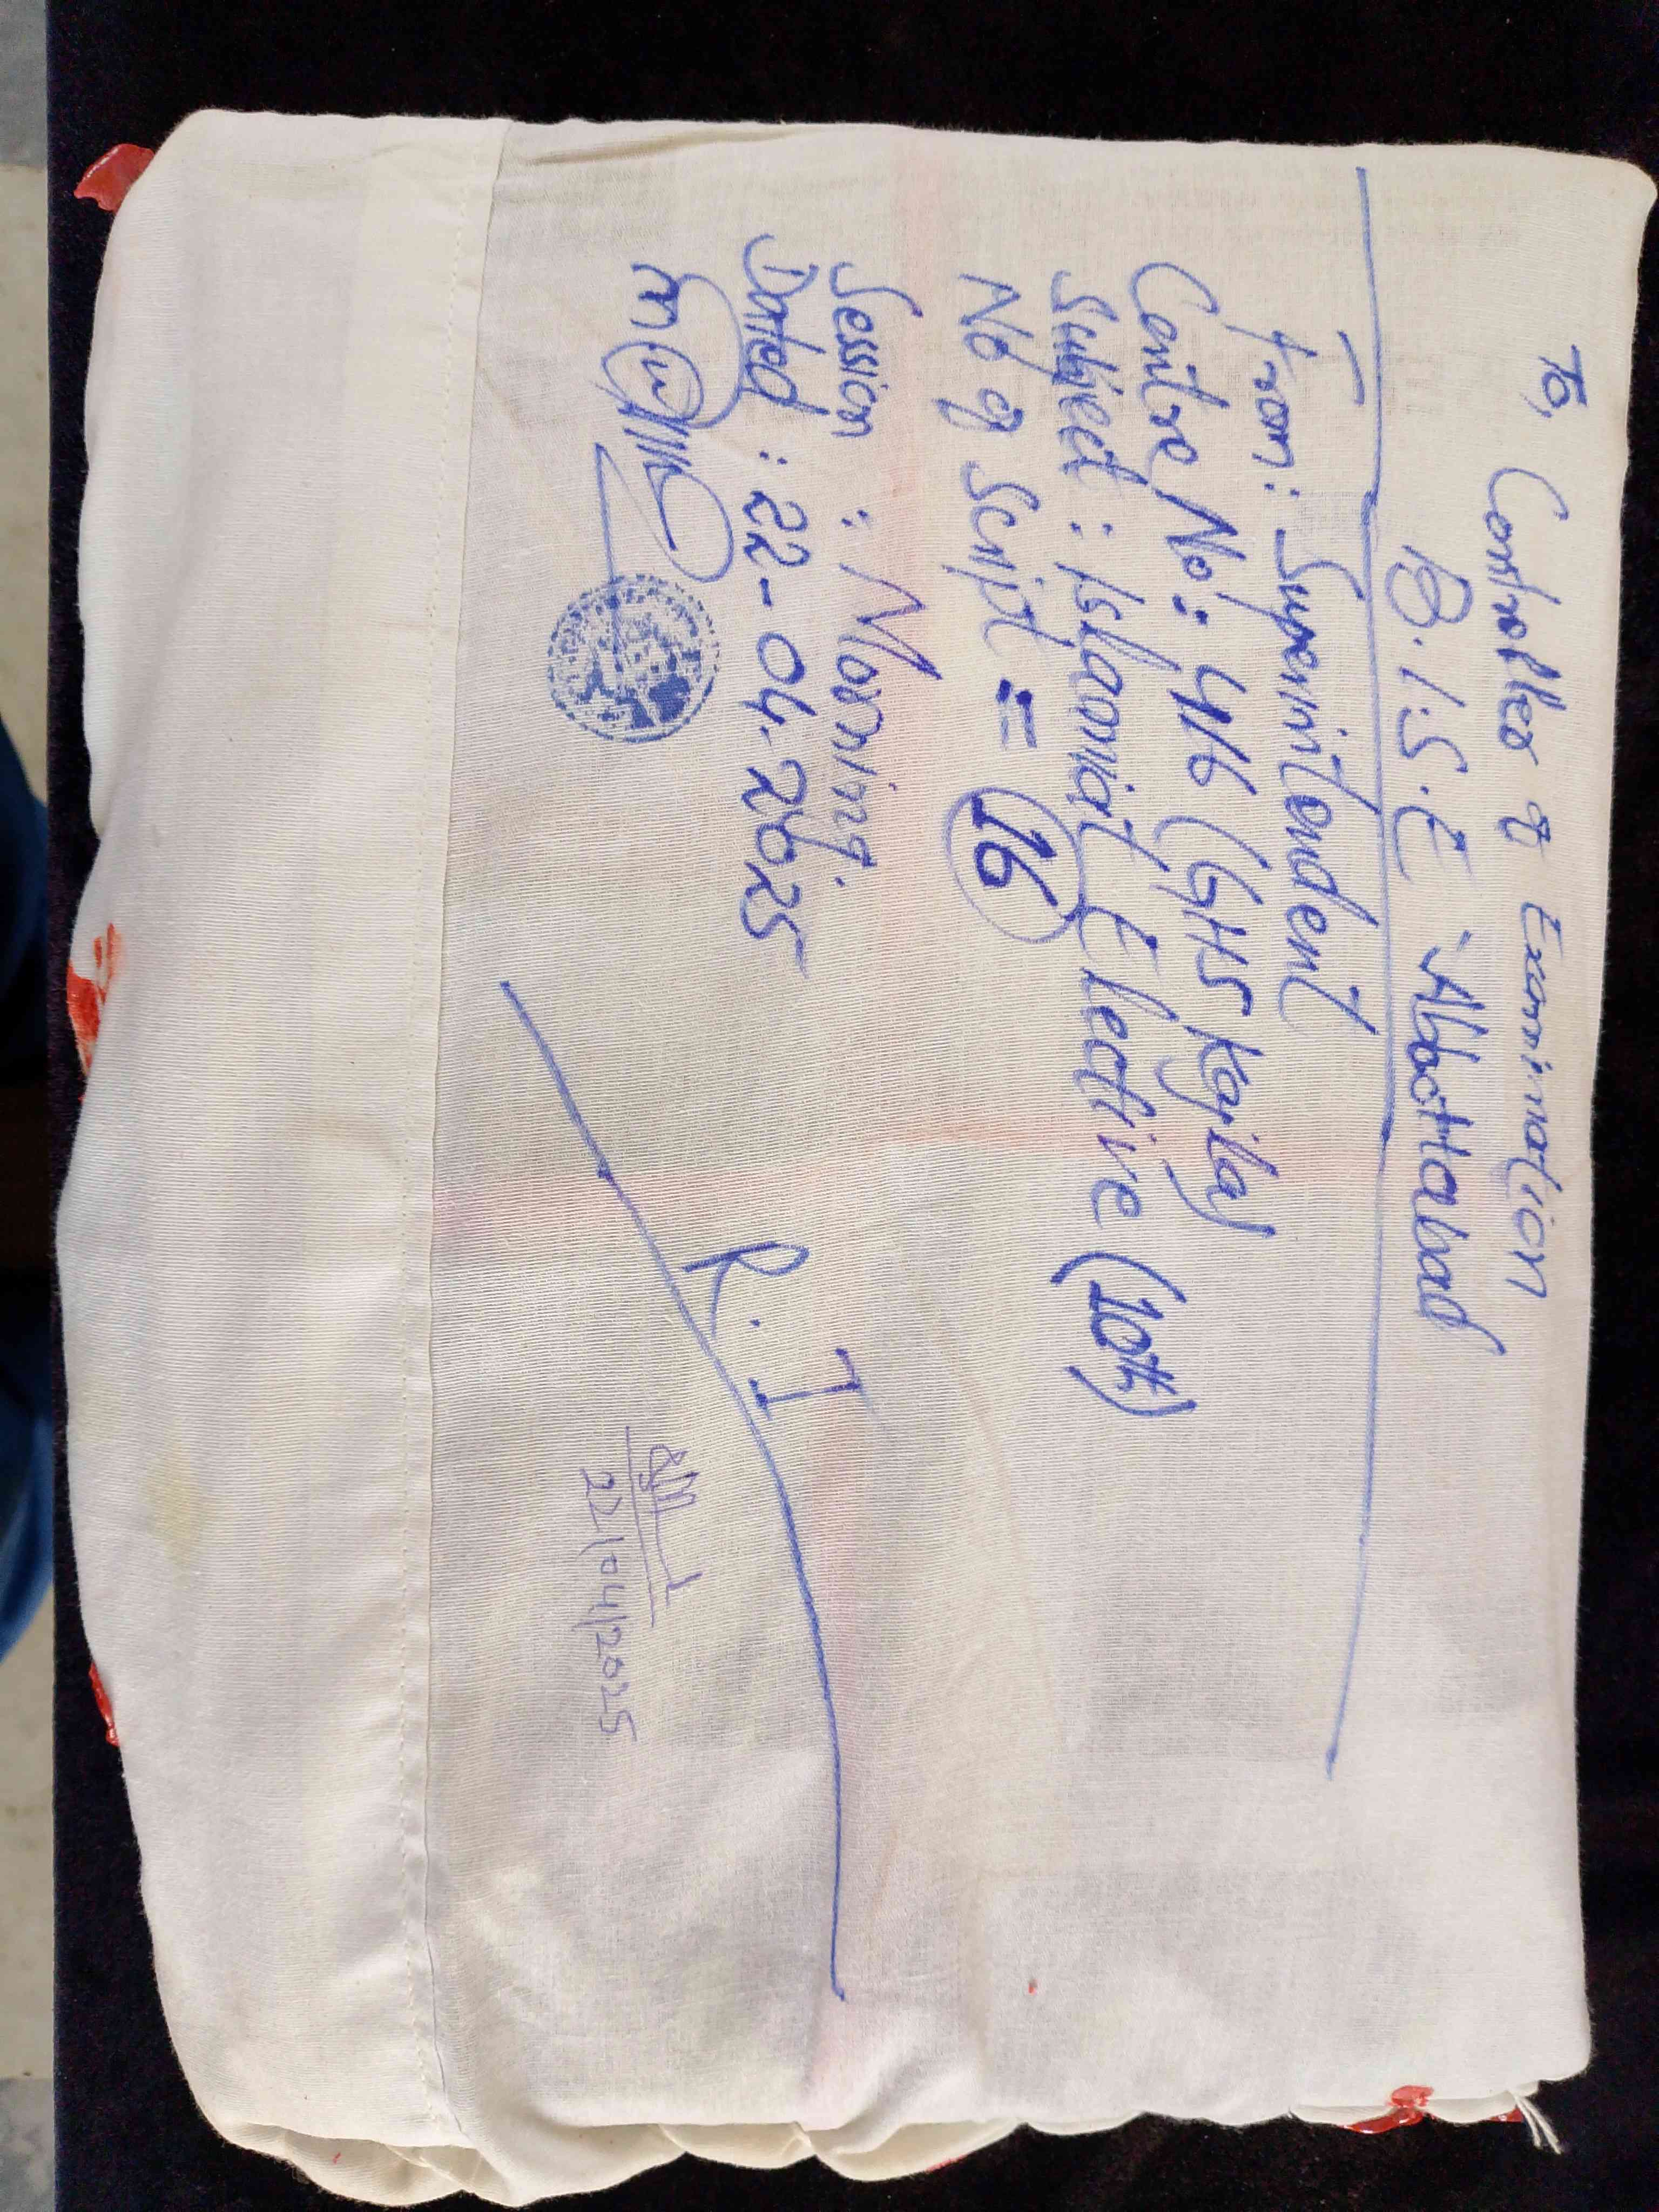 To, Controller of Examination
B.I.S.E Abbottabad
From: Superintendent
Centre No: 416 (GHS Kajla)
Subject: Islamiat Elective (10th)
No of Script = 16
Session : Morning.
Dated : 22-04-2025
R.I
22/04/2025